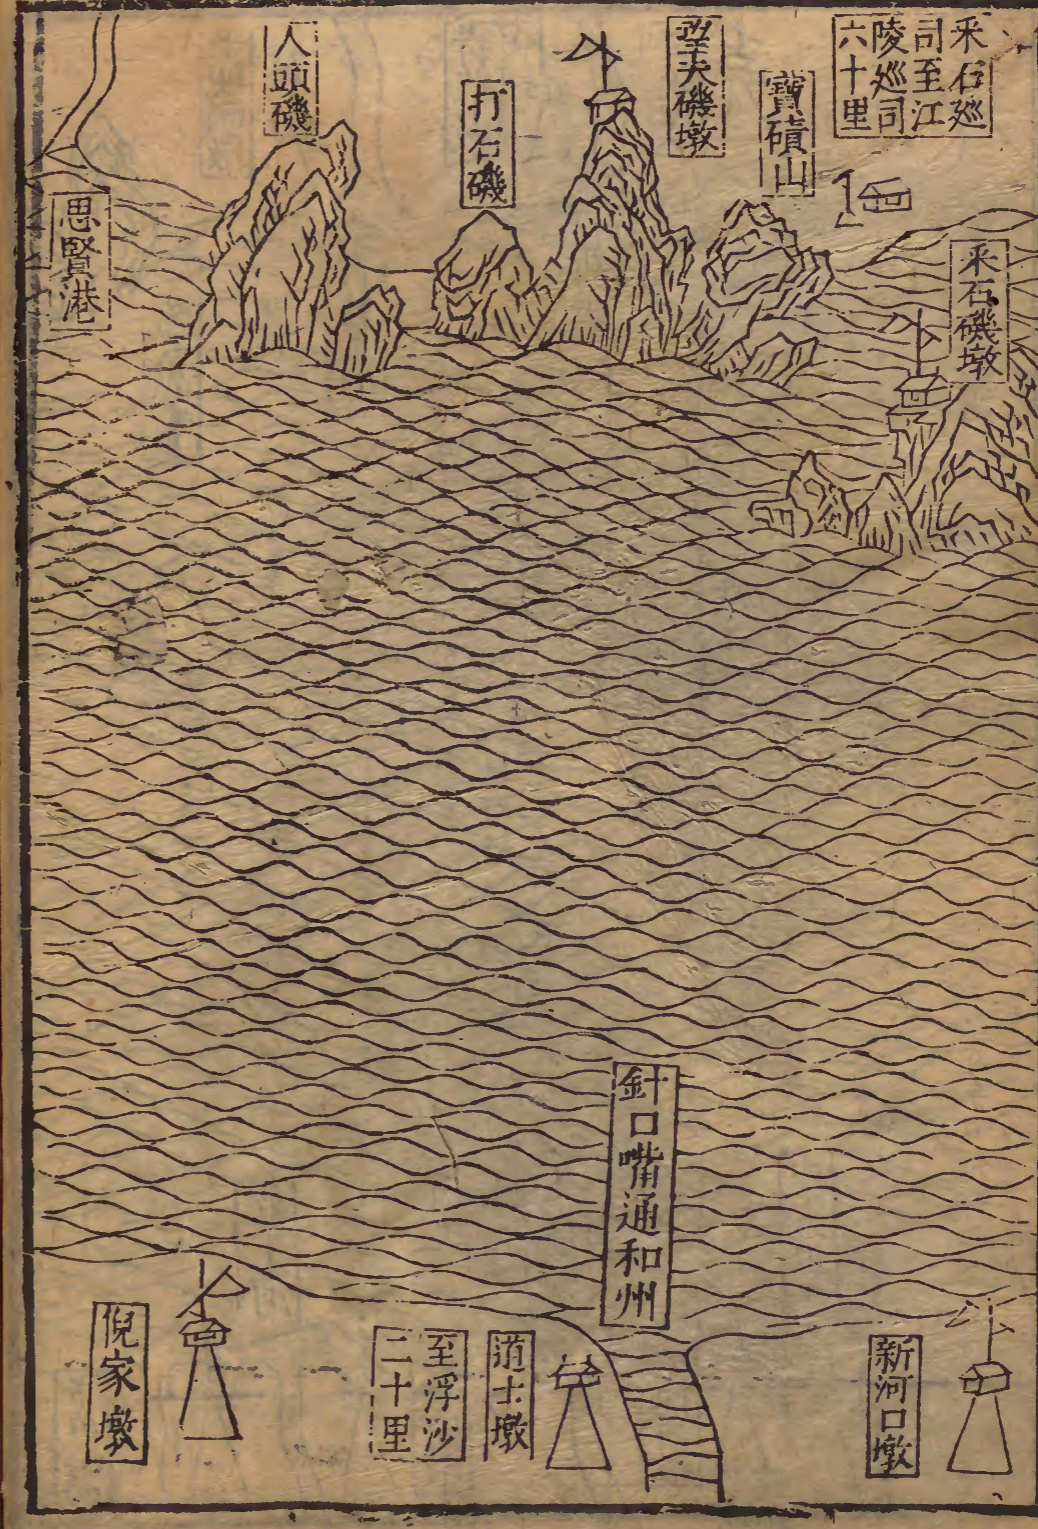 采石廵
司至江
陵廵司
六十里
寶磧山
望夫磯墩
打石磯
人頭磯
思賢港
采石磯墩
針口嘴通和州
新河口墩
道士墩
至浮沙
二十里
倪家墩